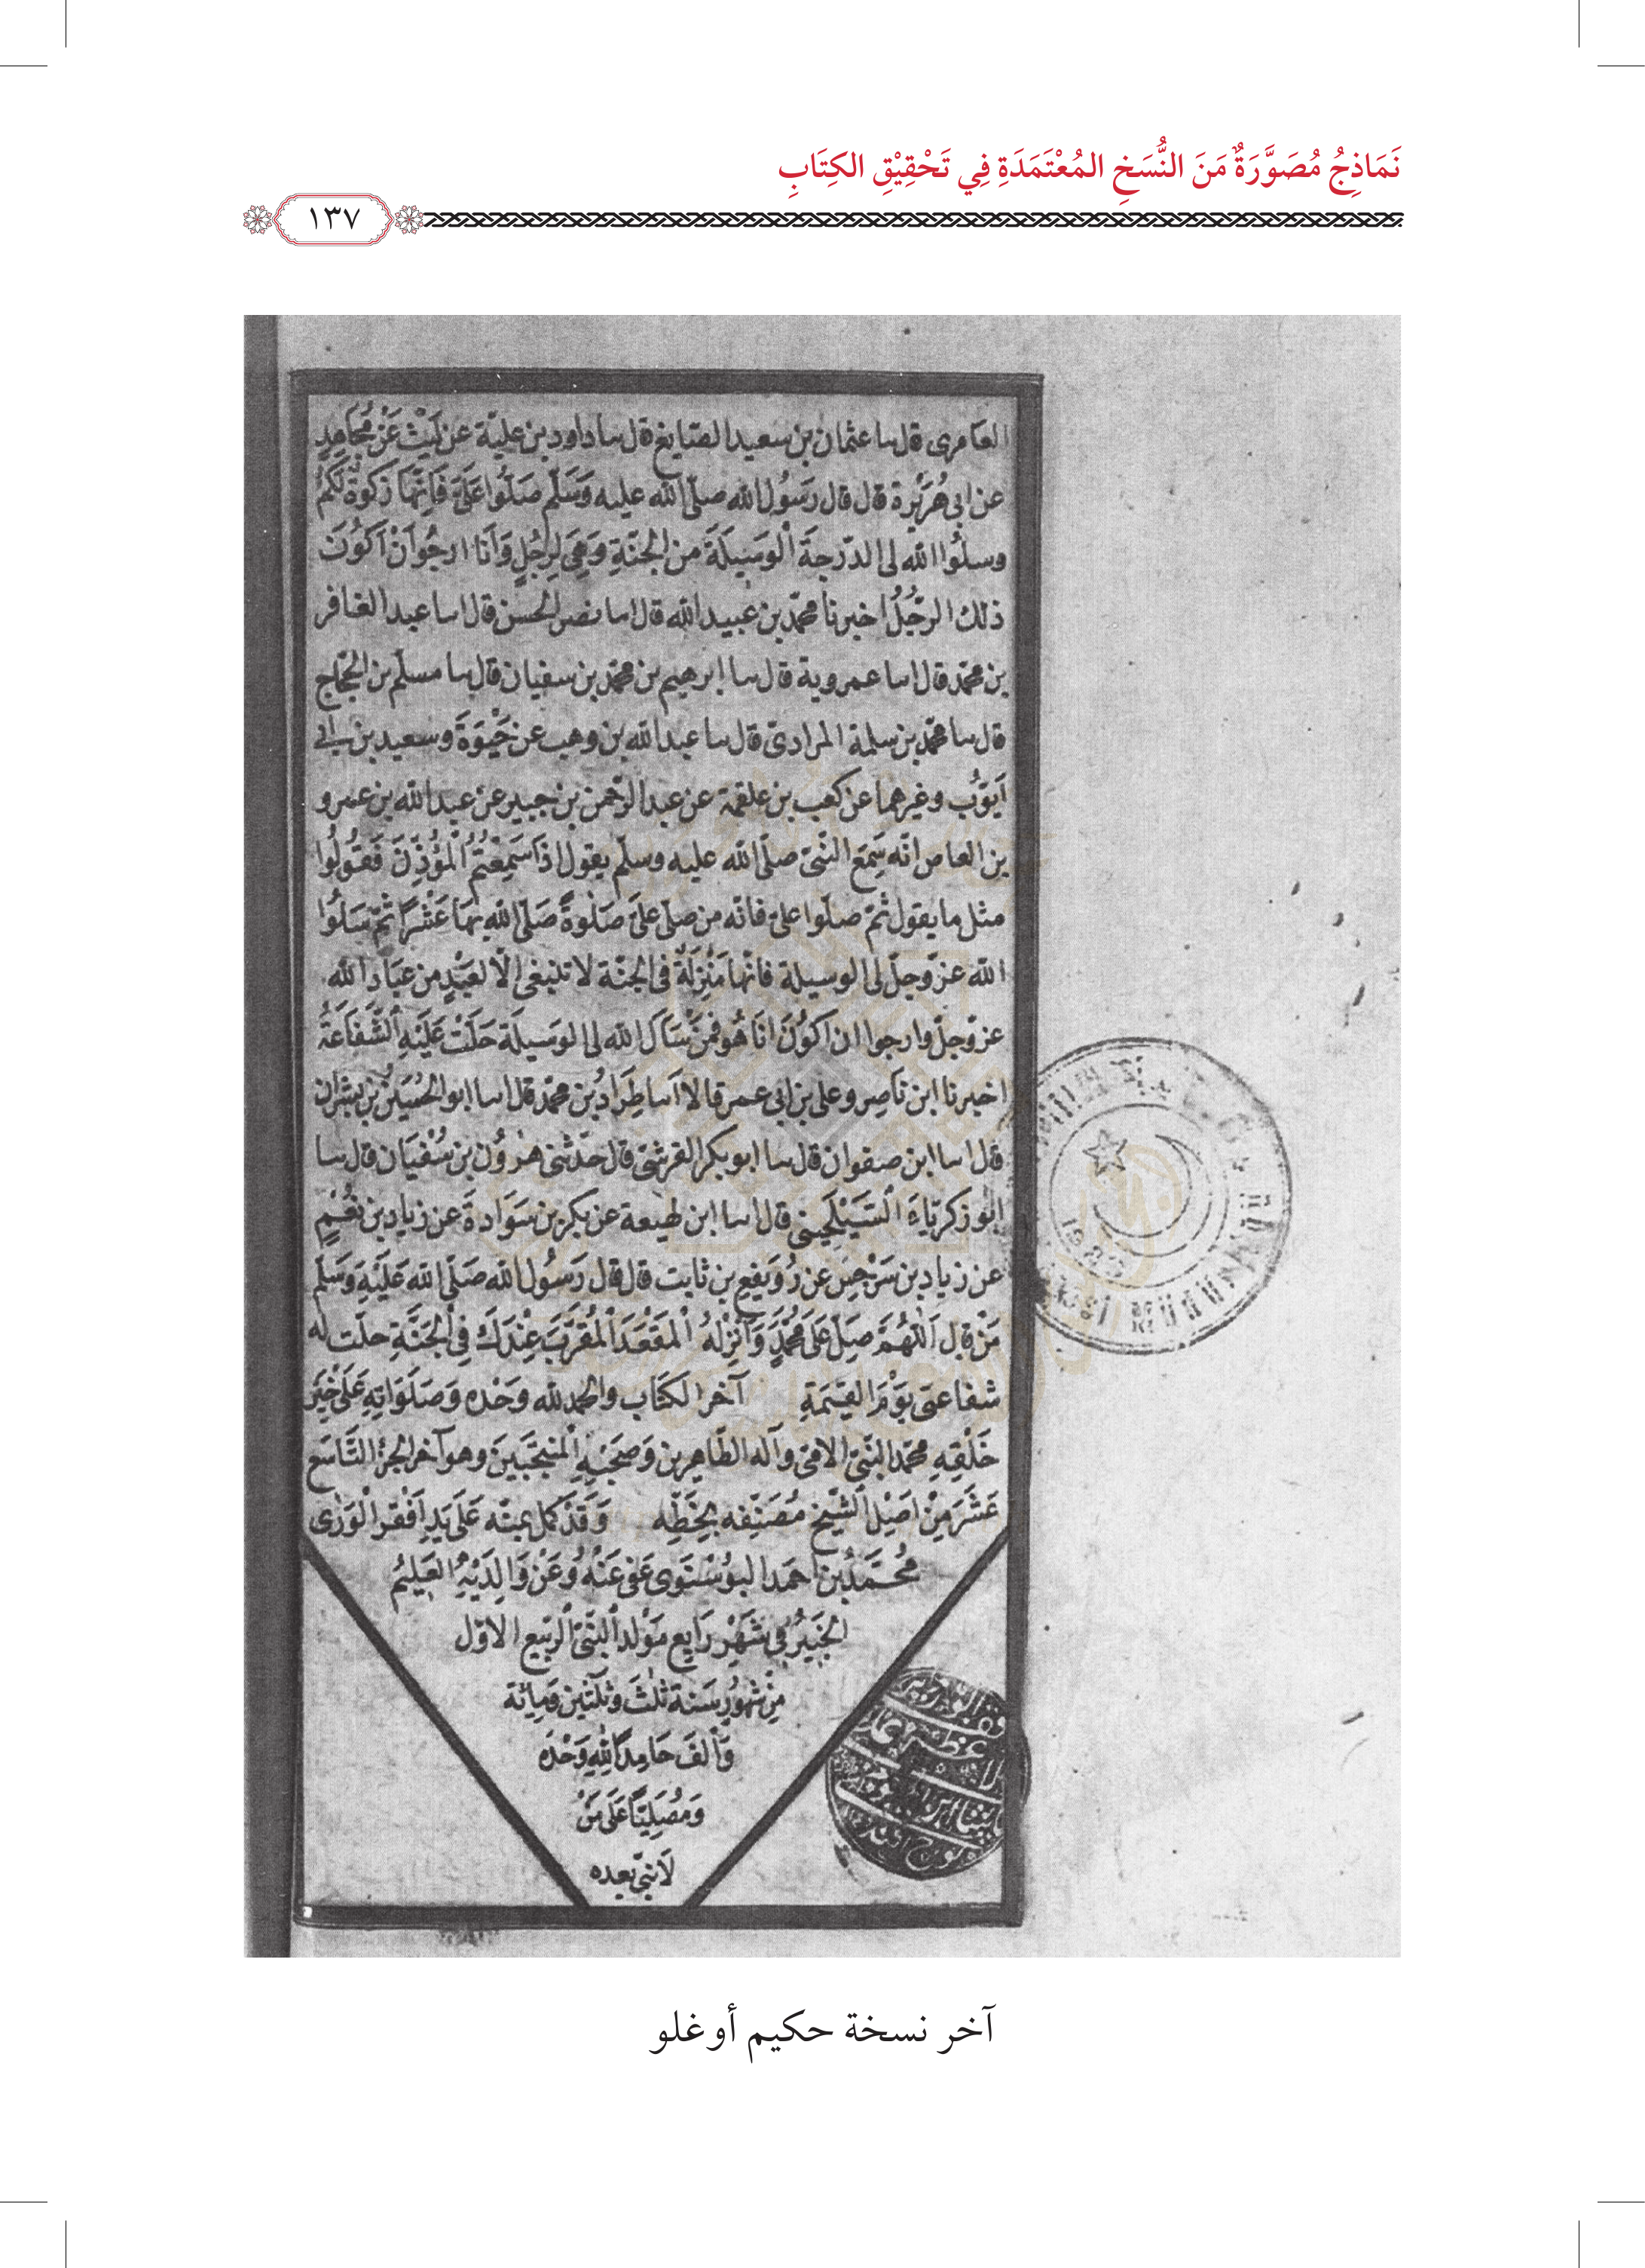 نَمَاذِجُ مُصَوَّرَةٌ مَنَ النُّسَخِ المُعْتَمَدَةِ فِي تَحْقِيْقِ الكِتَابِ
١٣٧
العامرى قال سا عثمان بن سعيد الصّايغ قال سا داود بن علية عن لَيْثٍ عَنْ مُجَاهِدٍ
عن ابى هُرَيْرة قال قال رَسُولُ الله صلّى الله عليه وَسَلّم صَلّوُا عَلَىَّ فَاِنَّهَا زَكوةٌ لَكُمْ
وسلُوا الله لى الدّرجةَ الْوسَيلَةَ من الجَنّةِ وَهِىَ لِرَجُلٍ وَاَنا ارجُو اَنْ اَكُونَ
ذلك الرّجُلُ اخبرنا محمّد بن عبيد الله قال اسا نصر الحسن قال اسا عبد الغافر
بن محمّد قال اسا عمروية قال سا ابرهيم بن محمّد بن سفيان قال سا مسلم بن الحجّاج
قال سا محمّد بن سلمة المرادىّ قال سا عبد الله بن وهب عن حَيْوَةَ وسعيد بن ابى
اَيّوُب وغيرهما عن كعب بن علقمة عن عبد الرّحمن بن جبير عن عبد الله بن عمرو
بن العاص انّه سَمِعَ النّبىّ صلّى الله عليه وسلّم يقول اِذَا سَمِعْتُمُ الْمُؤَذِّنَ فَقُولُوا
مثل ما يقول ثمّ صلّوا علىّ فانّه من صلّى علىَّ صَلوةً صَلّى اللهِ بهَا عَشْرًا ثمّ سَلُوا
الله عزّ وجلّ لى الوسيلة فانّها مَنْزِلَةٌ فى الجنّة لا تنبغى الّا لعَبْدٍ من عبَادِ الله
عزّ وجلّ وارجوا ان اكُونَ انَا هُو فمَنْ سَاَلَ الله لى الوَسيلَة حَلّتْ عَلَيْهِ الشَّفاعَةُ
اخبرنا ابن نَاصِر وعلى بن ابى عمر قالا اَسا طِرَادُ بن محمّد قال اسا ابو الحُسَيْن بْن بِشْران
قال اسا ابن صفوان قال سا ابو بكر القرشىّ قال حدّثنى هرُون بن سُفْيَان قال سا
ابُو زكريّاءَ السَّيْلَحِينى قال اسا ابن لهيعة عن بكر بن سَوَادةَ عن زياد بن نُعَيْمٍ
عن زياد بن سَرْجِس عن رُوَيفِعِ بن ثابت قال قال رَسوُل الله صَلّى الله عَلَيْهِ وَسَلّم
مَنْ قال اَللّهُمَّ صَلِّ عَلى مُحَمَّدٍ وَاَنْزِلْهُ الْمَقْعَدَ الْمُقَرَّبَ عِنْدَكَ فِى الْجَنَّةِ حلّت له
شفاعتى يَوْمَ القِيمَةِ آخر الكتَاب والحمد لله وَحْده وَصَلَوَاتِهِ عَلى خَيْرِ
خَلْقِهِ محمّد النّبىّ الامّىّ وآله الطّاهِرين وَصَحْبِهِ الْمُنتجَبينَ وهو آخر الجزْ التّاسَع
عَشَرَ مِنْ اصْلِ الشّيْخِ مُصَنّفِه بِخَطّهِ وَقَدْ كمل بمنّه عَلى يَدِ اَفْقر الْوَرٰى
مُحَمَّدُ بن احمَد البوُسْنَوى عَفى عَنْهُ وَعَنْ وَالِدَيْهِ العَليمُ
الخَبيرُ فى شَهْرِ رَابِع مَوْلد النّبىّ الرّبيع الاوّل
مِنْ شهُورِ سَنة ثلثَ وثلثين وَمِائة
وَاَلفَ حَامِدًا لِلهِ وَحْدَه
وَمُصَلّيًا عَلى مَنْ
لَا نبىّ بَعده
آخر نسخة حكيم أوغلو